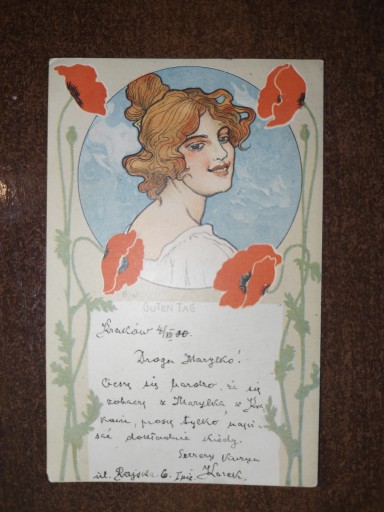 GUTEN TAG
Kraków 4/VII 00.
Droga Marylko!
Cieszę się bardzo, że się
zobaczę z Marylką, w Kra
kowie, proszę tylko napi-
sać dokładnie kiedy.
Szczery Kuzyn
ul. Rajska 6. I p. Karek.